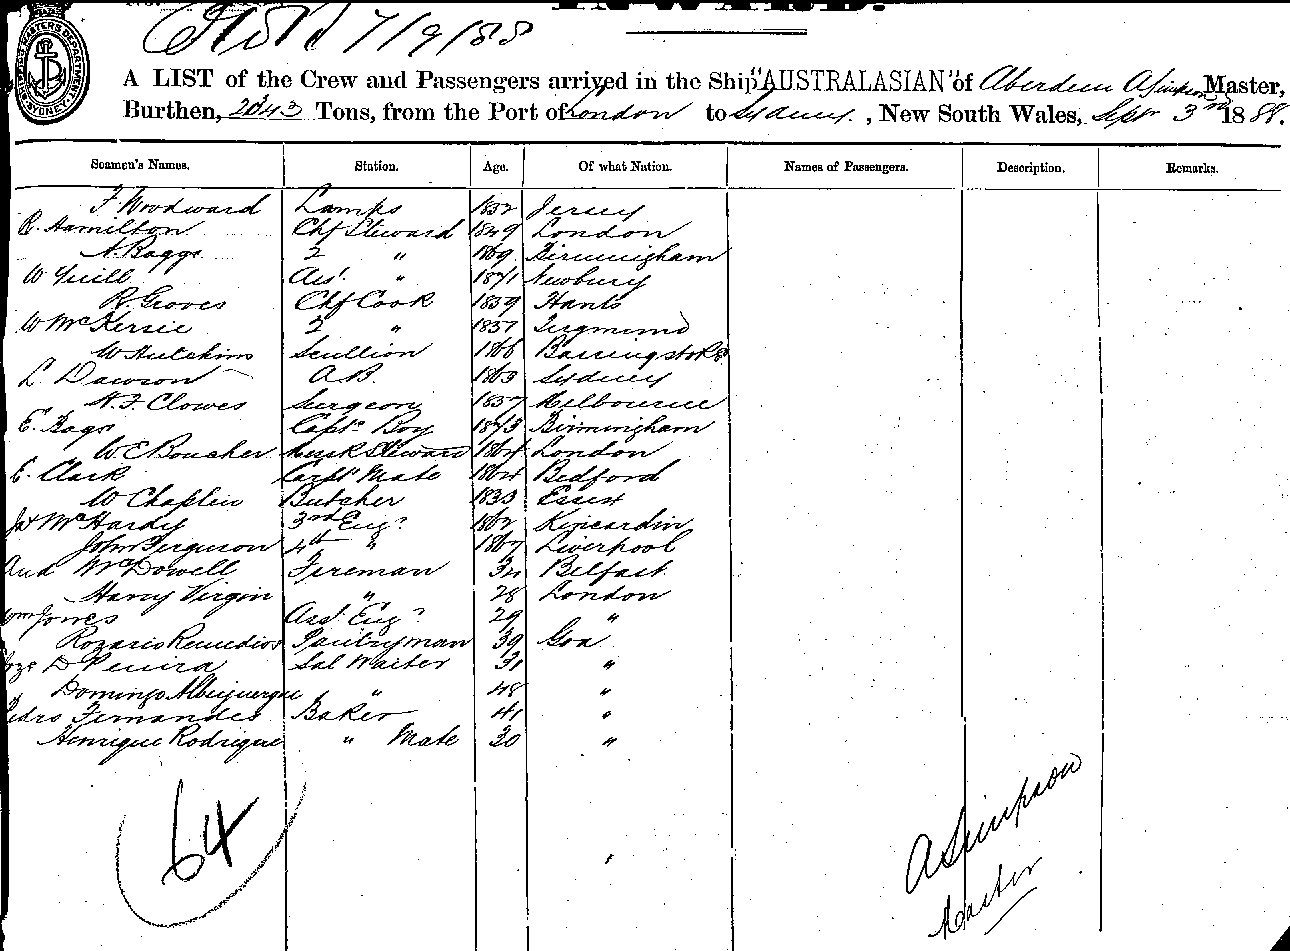 INWARD.
7/9/88
A LIST of the Crew and Passengers arrived in the Ship "AUSTRALASIAN" of Aberdeen A Simpson Master,
Burthen, 2043 Tons, from the Port of London to Sydney, New South Wales, Sepr 3rd 1888.
Seamen's Names. Station. Age. Of what Nation. Names of Passengers. Description. Remarks.
F Woodward Lamps 1852 Jersey
R. Hamilton Chf Steward 1849 London
A. Baggs 2 " 1869 Birmingham
W Ass. " 1871 Newbury
R Groves Chf Cook 1859 Hants
W McKersie 2 " 1857
W Hutchins Scullion 1866 Barringstoke
L. Dawson A.B. 1863 Sydney
N. F. Clowes Surgeon 1857 Melbourne
E. Bags Capts Boy 1873 Birmingham
W E Boucher Steward 1864 London
E. Clark Carptr Mate 1864 Bedford
W Chaplin Butcher 1833 Essex
Jas McHardy 3rd Engr 1862 Kincardin
John Ferguson 4th " 1867 Liverpool
And McDowell Fireman 34 Belfast
Harry Virgin " 28 London
Wm Jones Asst Engr 29 "
Rozario Remedios Pantryman 39 Goa
Joze D Pereira Sal Waiter 31 "
Domingo Albuquerque " 48 "
Pedro Fernandes Baker 41 "
Henrique Rodrigue " Mate 30 "
64
A Simpson
Master